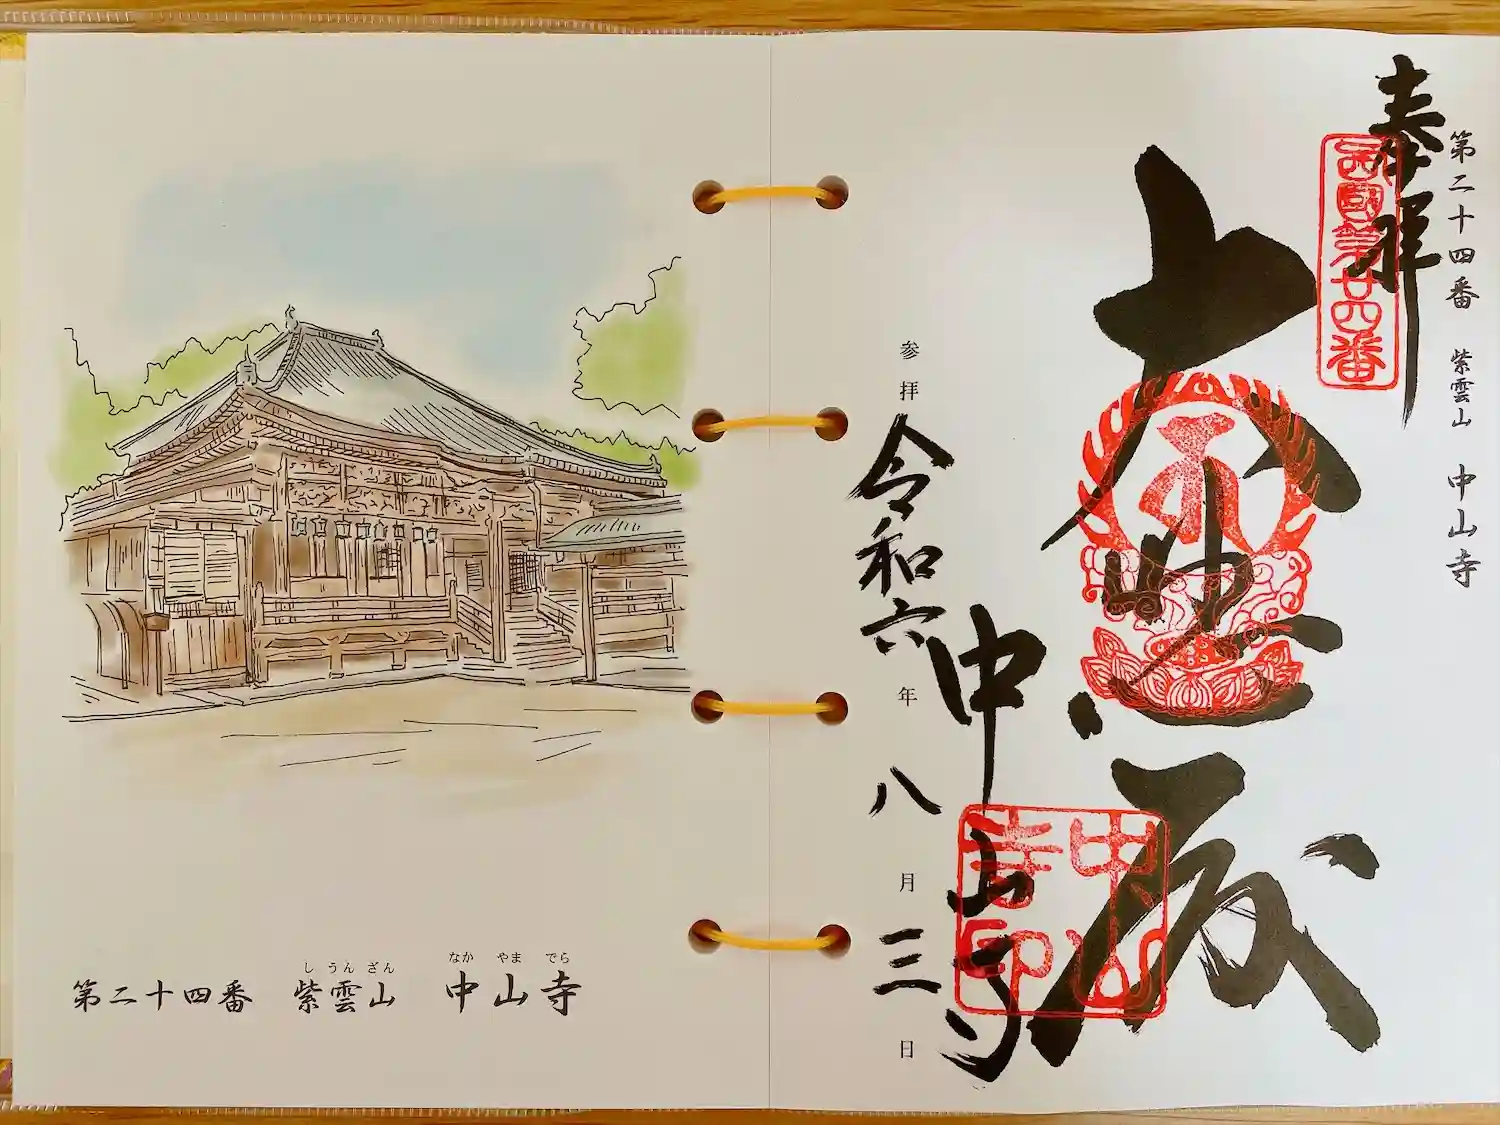 第二十四番 紫雲山 中山寺
奉拝
西國第廿四番
大悲殿
中山寺
中山寺印
参拝 令和六年 八月 三日
しうんざん なかやまでら
第二十四番 紫雲山 中山寺